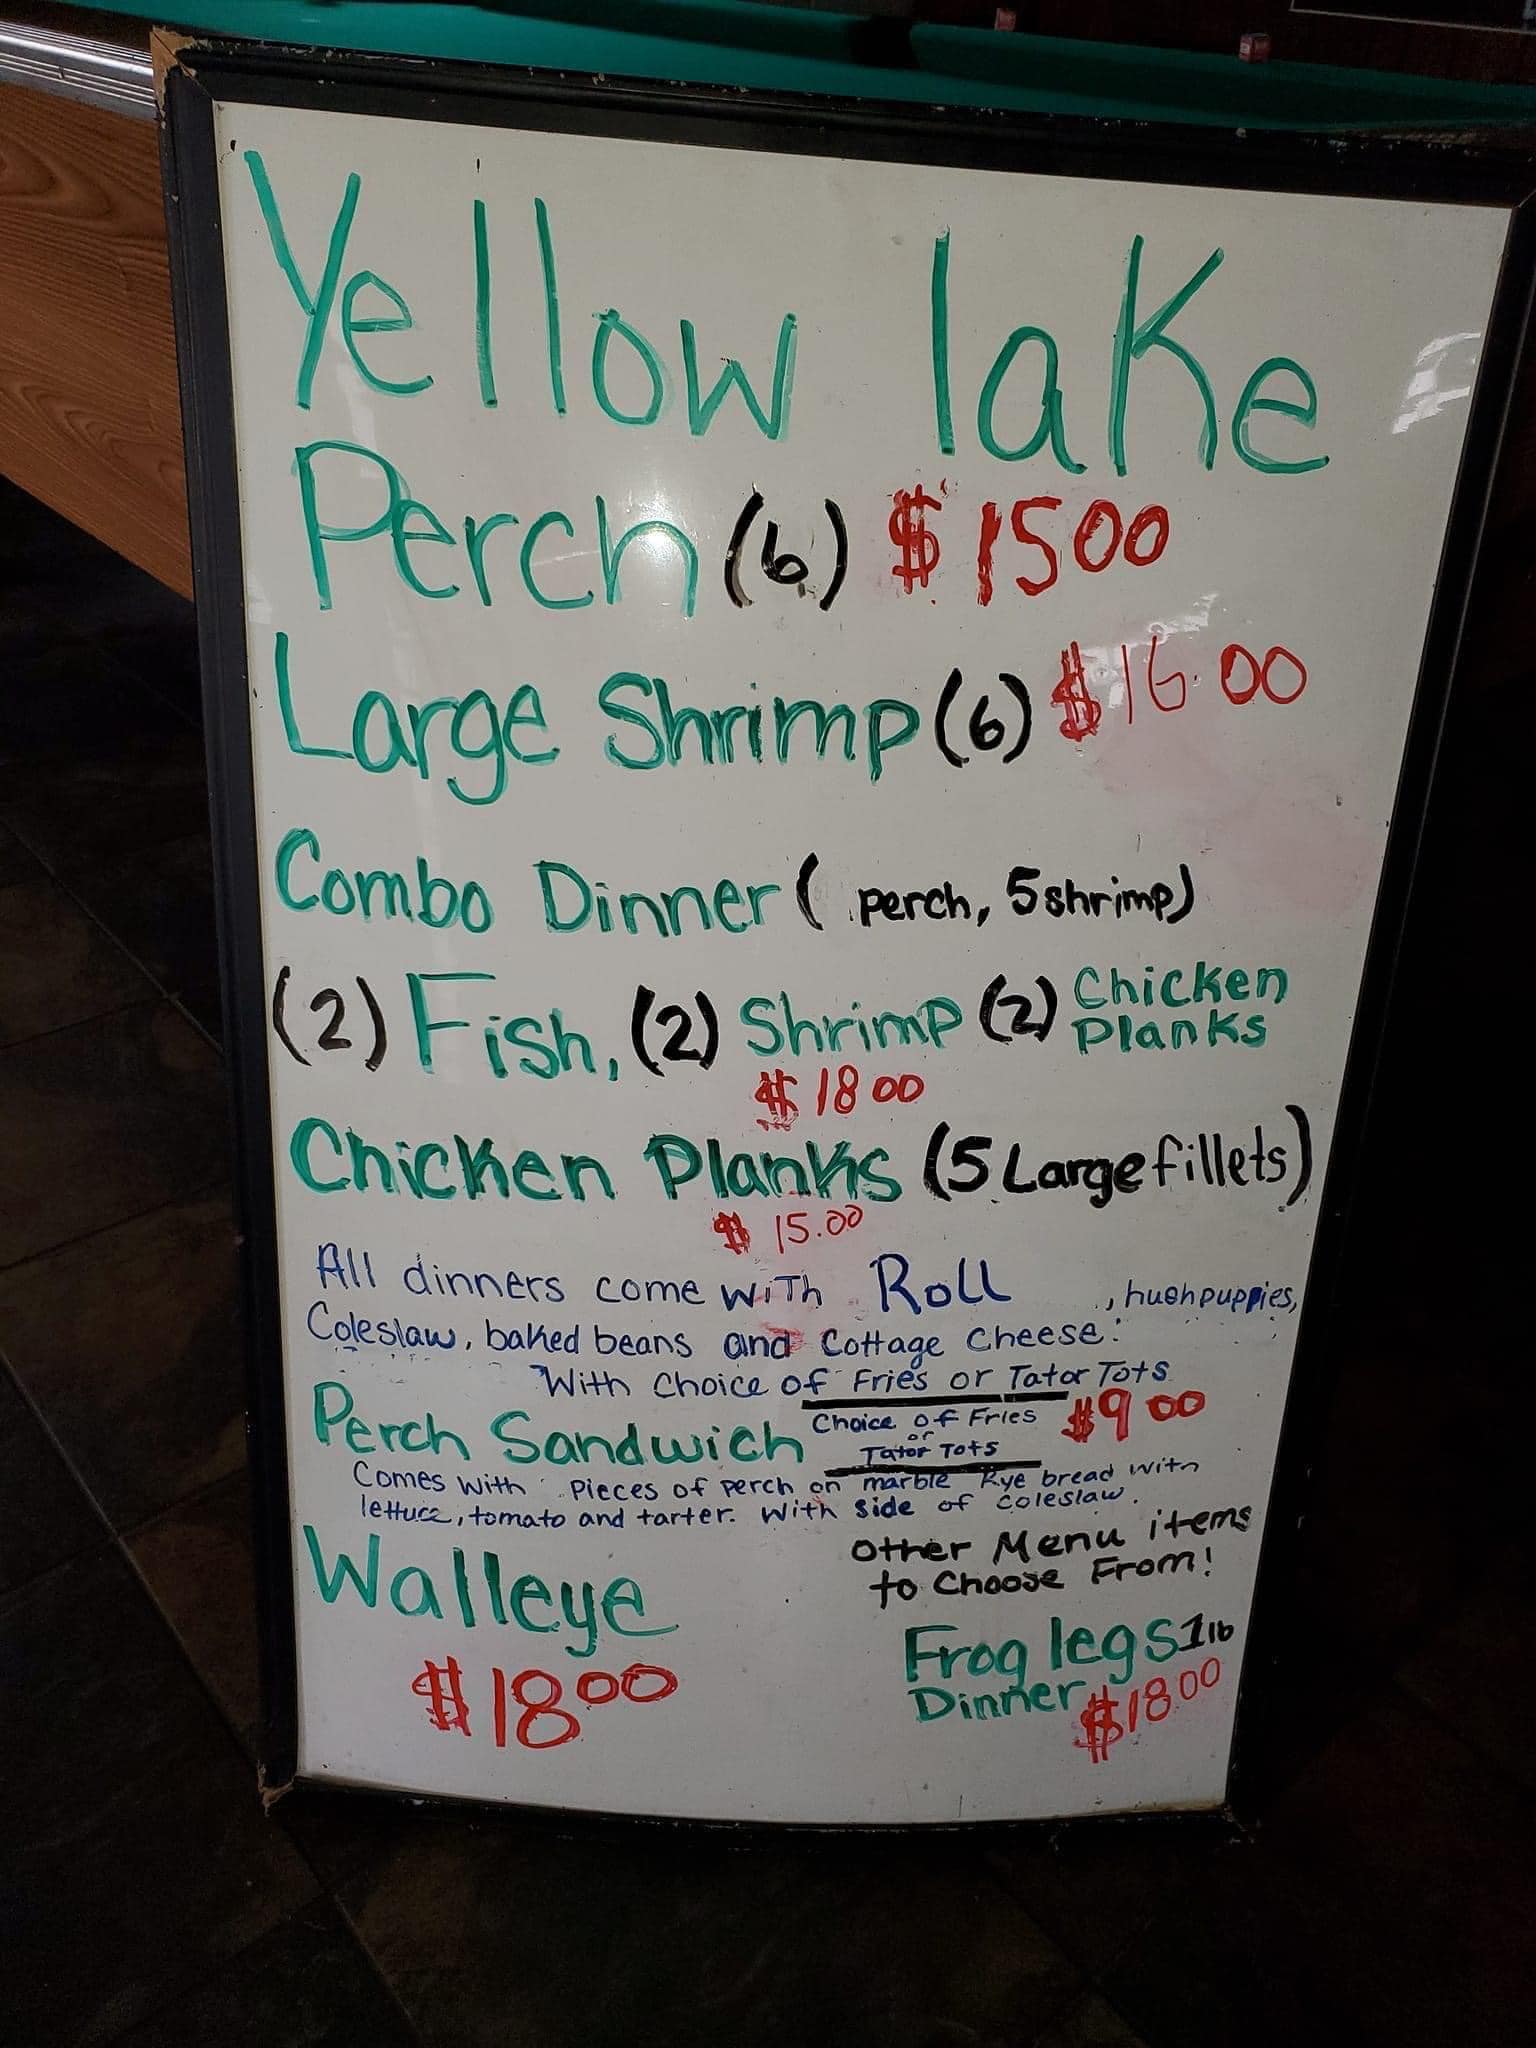 Yellow lake
Perch (6) $1500
Large Shrimp (6) $16.00
Combo Dinner ( perch, 5 shrimp)
(2) Fish, (2) Shrimp (2) Chicken Planks
$1800
Chicken Planks (5 Large fillets)
$15.00
All dinners come WiTh Roll , hushpuppies,
Coleslaw, baked beans and Cottage Cheese.
With Choice of Fries or Tator Tots
Perch Sandwich Choice of Fries or Tator Tots $900
Comes With pieces of perch on marble Rye bread with
lettuce, tomato and tarter. With side of Coleslaw.
Other Menu items
to Choose From!
Walleye
$1800
Frog legs 1lb
Dinner $1800